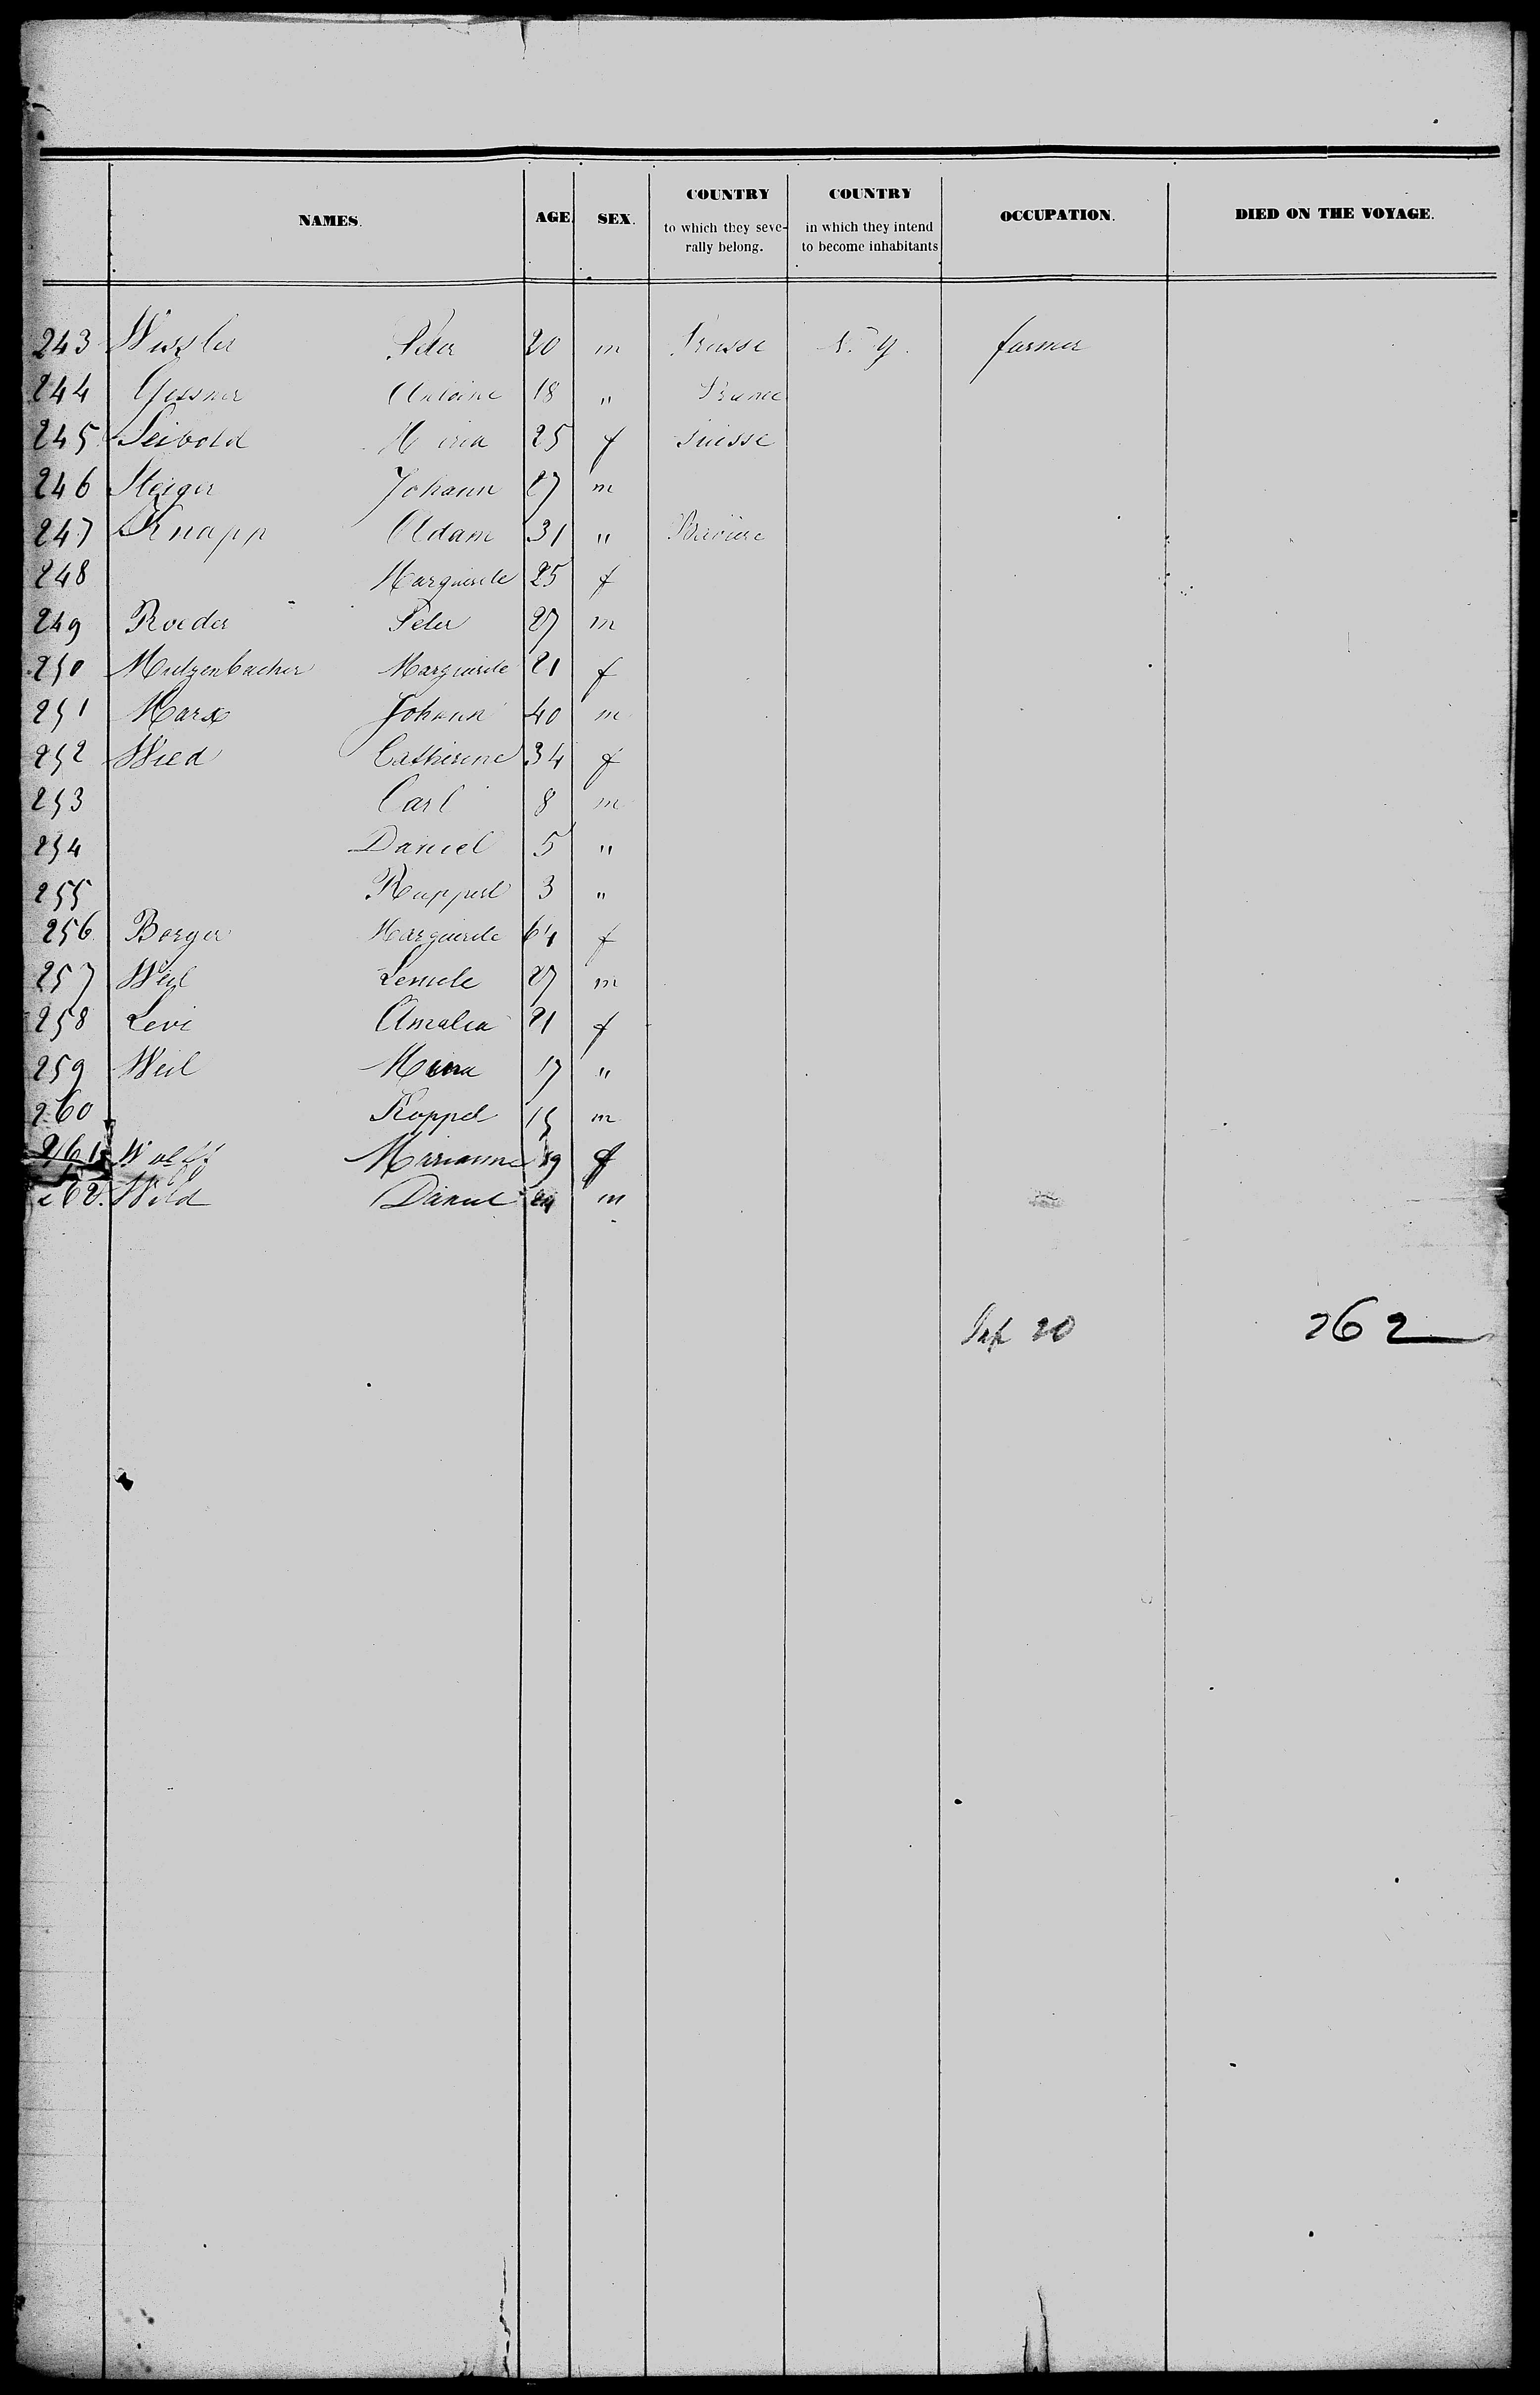 NAMES. AGE. SEX. COUNTRY to which they seve-rally belong. COUNTRY in which they intend to become inhabitants OCCUPATION. DIED ON THE VOYAGE.
243 Wissler Peter 20 m Prusse N. Y. farmer
244 Gessner Antoine 18 " France
245 Seibold Maria 25 f Suisse
246 Steiger Johann 27 m
247 Knapp Adam 31 " Bavière
248 Marguerite 25 f
249 Roeder Peter 27 m
250 Mutzenbacher Marguerite 21 f
251 Marx Johann 40 m
252 Wied Catherine 34 f
253 Carl 8 m
254 Daniel 5 "
255 Ruppert 3 "
256 Borger Marguerite 64 f
257 Weil 27 m
258 Levi Amalia 21 f
259 Weil Mina 17 "
260 Koppel 15 m
261 Wolff Marianne 19 f
262. Wild Daniel m
20 262